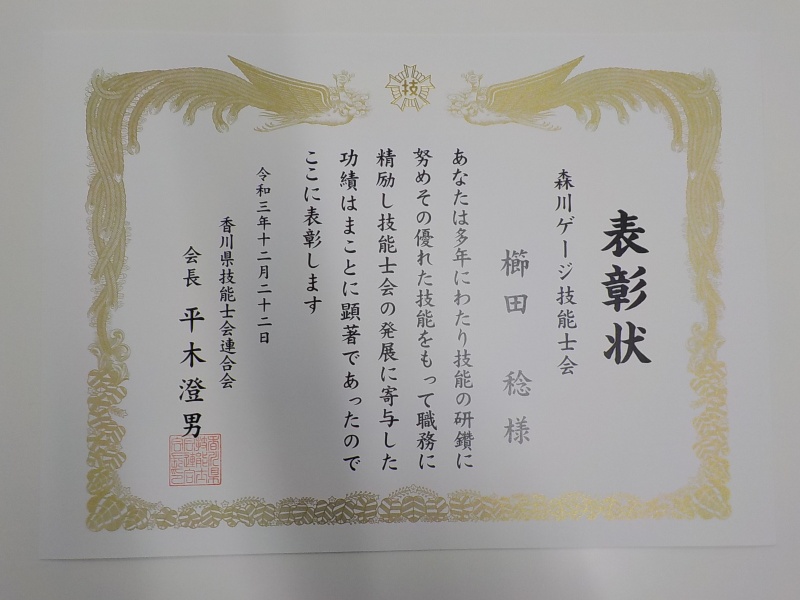 技
表彰状
森川ゲージ技能士会
櫛田 稔 様
あなたは多年にわたり技能の研鑽に
努めその優れた技能をもって職務に
精励し技能士会の発展に寄与した
功績はまことに顕著であったので
ここに表彰します
令和三年十二月二十二日
香川県技能士会連合会
会長 平木澄男